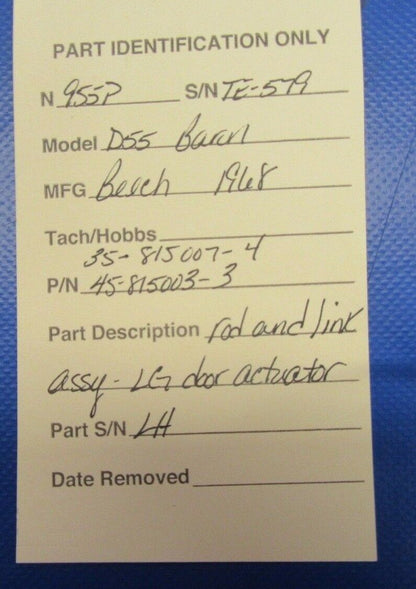 PART IDENTIFICATION ONLY
N 955P S/N TE-579
Model D55 Baron
MFG Beech 1968
Tach/Hobbs
35-815007-4
P/N 45-815003-3
Part Description rod and link
assy- LG door actuator
Part S/N LH
Date Removed